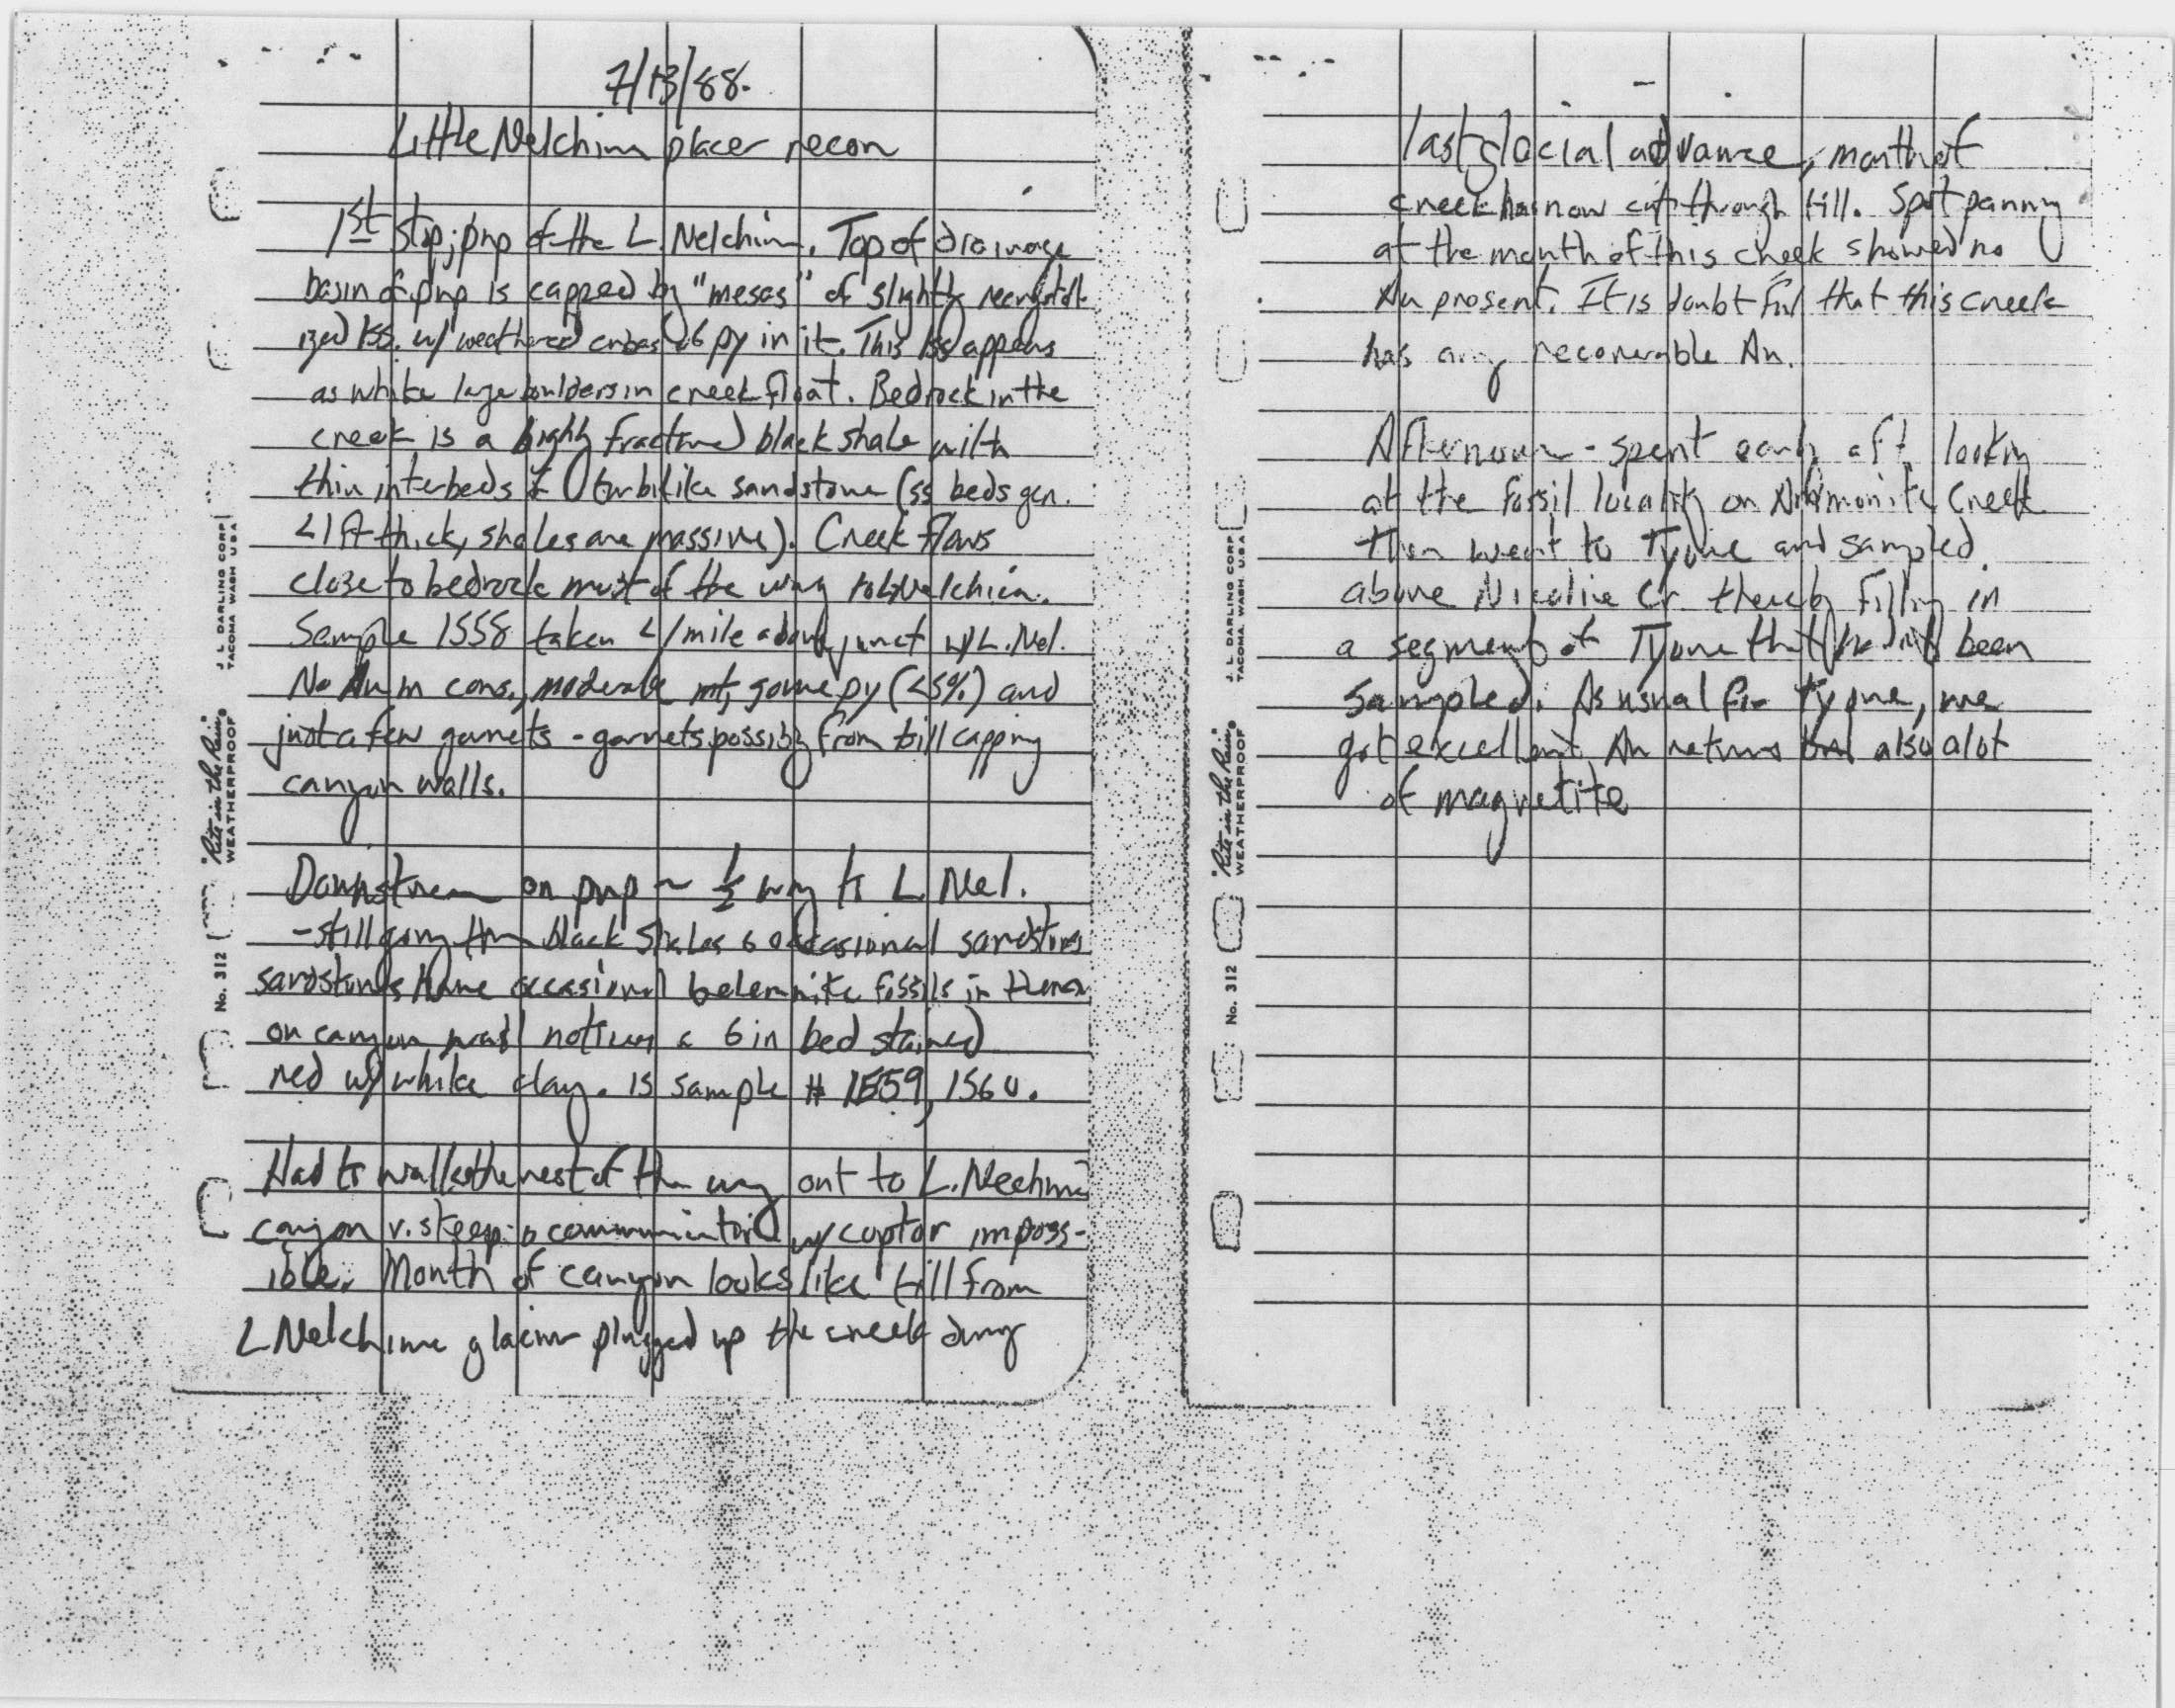 7/13/88.
Little Nelchina placer recon
1st stop; pup of the L. Nelchina. Top of drainage
basin of pup is capped by "mesas" of slightly recrystall-
ized lss. w/ weathered cubes of py in it. This lss appears
as white large boulders in creek float. Bedrock in the
creek is a highly fractured black shale with
thin interbeds of turbilike sandstone (ss beds gen.
<1 ft thick, shales are massive). Creek flows
close to bedrock most of the way to L. Nelchina.
Sample 1558 taken <1 mile above junct w/ L. Nel.
No Au in cons., moderate mt, some py (<5%) and
just a few garnets - garnets possibly from till capping
canyon walls.
Downstream on pup ~ 1/2 way to L. Nel.
- still going thru black shales & occasional sandstones
sandstones have occasional belemnite fossils in them
on canyon wall noticed a 6 in bed stained
red w/ white clay. is sample # 1559, 1560.
Had to walk the rest of the way out to L. Nelchina
canyon v. steep & communication w/ coptor imposs-
ible. Mouth of canyon looks like till from
L Nelchina glacier plugged up the creek during
last glacial advance, mouth of
creek has now cut through till. Spot panning
at the mouth of this creek showed no
Au present. It is doubtful that this creek
has any recoverable Au.
Afternoon - spent early aft looking
at the fossil locality on Ammonite Creek
Then went to Tyone and sampled
above Nicolie Cr thereby filling in
a segment of Tyone that hadn't been
sampled. As usual for Tyone, we
got excellent Au returns but also alot
of magnetite
J. L. DARLING CORP.
TACOMA, WASH. U.S.A.
"Rite in the Rain"
WEATHERPROOF
No. 312
J. L. DARLING CORP.
TACOMA, WASH. U.S.A.
"Rite in the Rain"
WEATHERPROOF
No. 312